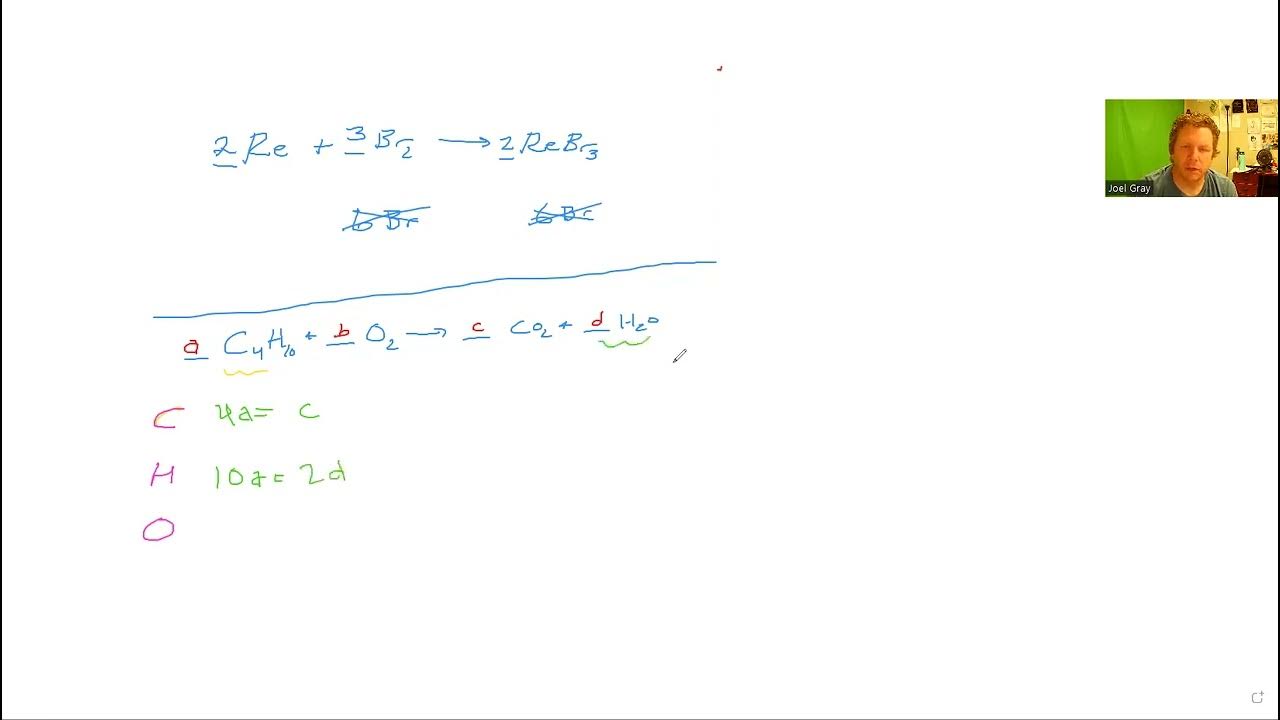 2 Re + 3 Br2 → 2 ReBr3
6 Br 6 Br
a C4H10 + b O2 → c CO2 + d H2O
C 4a = c
H 10a = 2d
O
Joel Gray